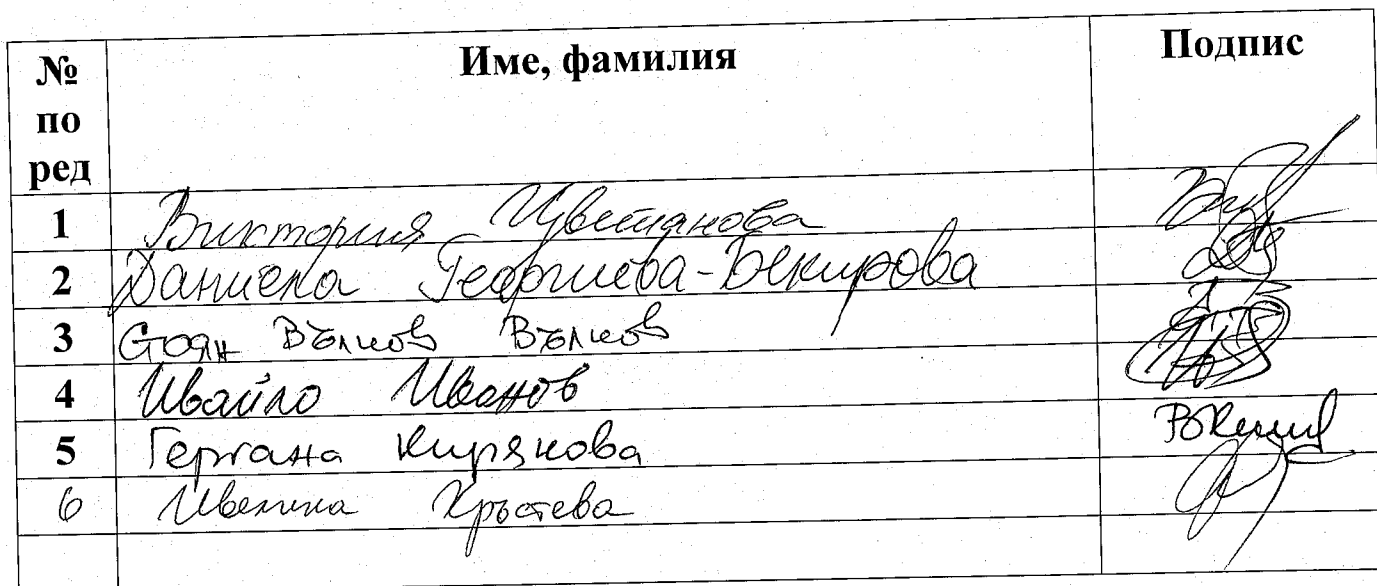 № по ред Име, фамилия Подпис
1 Виктория Цветанова
2 Даниела Георгиева-Бекирова
3 Стоян Вълков Вълков
4 Ивайло Иванов
5 Гергана Кирякова
6 Ивелина Хръстева